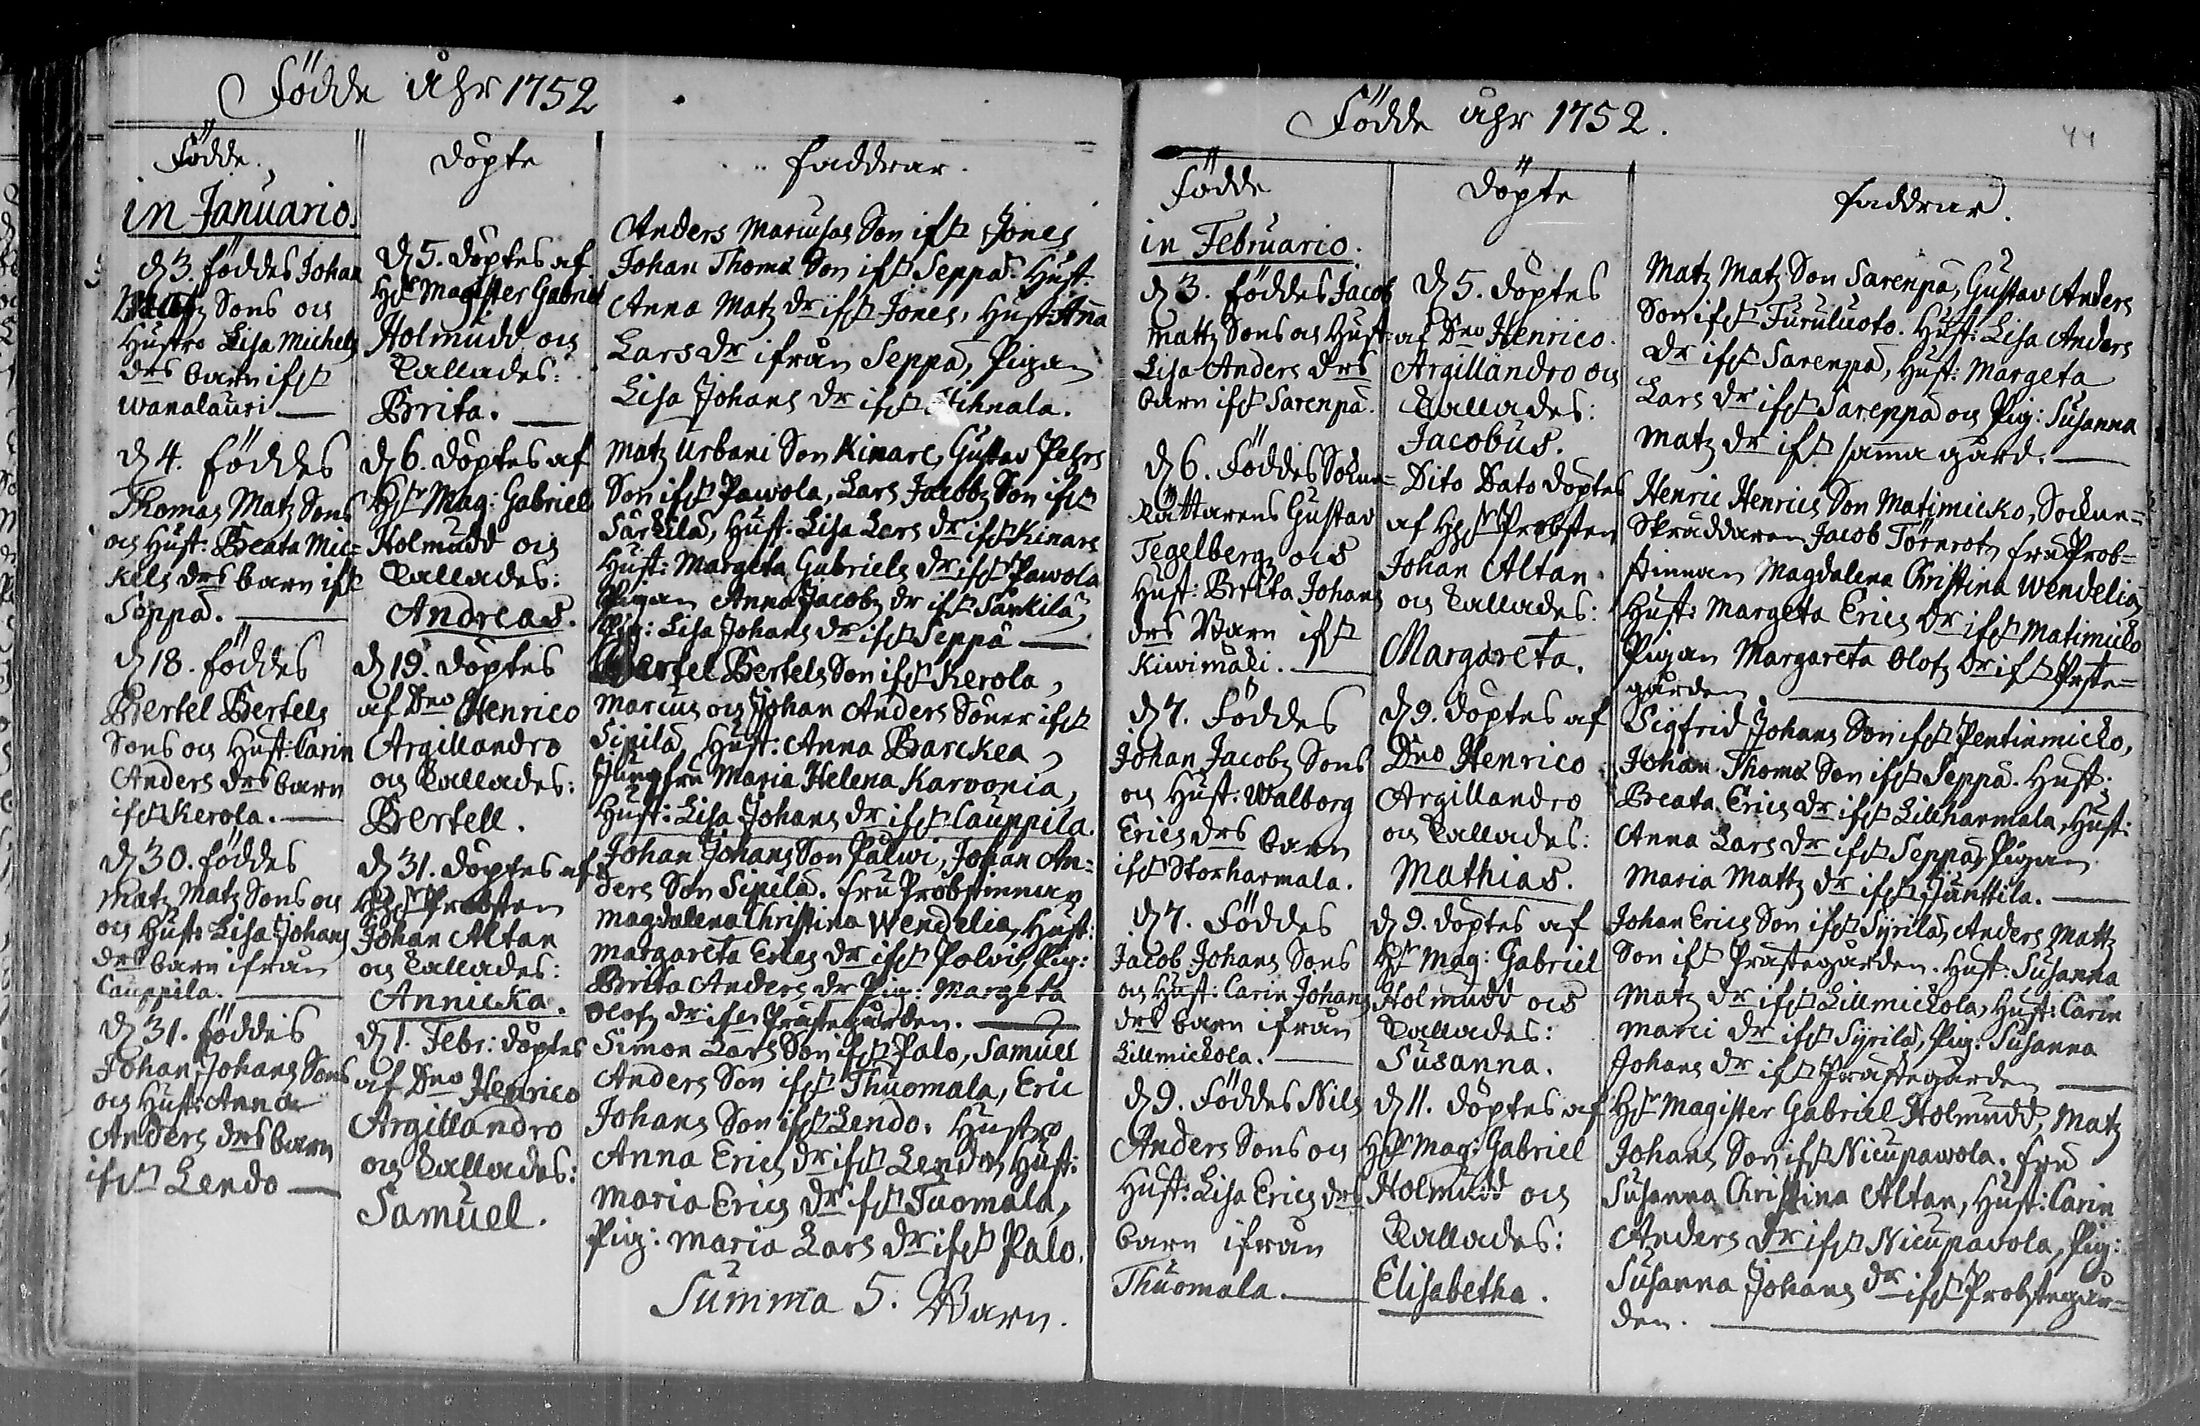 Födde åhr 1752
Födde.
in Januario.
d 3. föddes Johan
Matz Sons och
Hustro Lisa Michels
drs barn ifrån
Wanalauri.
d 4. föddes
Thomas Matz Sons
och Hust: Beata Mic=
kels drs barn ifr
Seppä.
d 18. föddes
Bertel Bertels
Sons och Hust: Carin
Anders drs barn
ifrån Kerola.
d 30. föddes
Matz Matz Sons och
och Hust: Lisa Johans
drs barn ifrån
Cauppila.
d 31. föddes
Johan Johans Sons
och Hust: Anna
Anders drs barn
ifrån Lendo
döpte
d 5. döptes af
Hr Magister Gabriel
Holmudd och
kallades:
Brita.
d 6. döptes af
Hr Mag: Gabriel
Holmudd och
kallades:
Andreas.
d 19. döptes
af Dno Henrico
Argillandro
och kallades:
Bertell.
d 31. döptes af
Hr Probsten
Johan Altan
och kallades:
Annicka.
d 1. Febr: döptes
af Dno Henrico
Argillandro
och kallades:
Samuel.
faddrar.
Anders Marcusas Son ifrån Jones
Johan Thomæ Son ifrån Seppä. Hust:
Anna Matz dr ifrån Jones, Hust: Aña
Lars dr ifrån Seppä, Pigan
Lisa Johans dr ifrån
Matz Urbani Son Kinare, Gustav Pehrs
Son ifrån Pawola, Lars Jacobz Son ifrån
Särkilä, Hust: Lisa Lars dr ifrån Kinare
Hust: Margeta Gabriels dr ifrån Pawola
Pigan Anna Jacobz dr ifrån Särkilä,
Pig: Lisa Johans dr ifrån Seppä
Bertel Bertels Son ifrån Kerola,
Marcus och Johan Anders Söner ifrån
Sipilä, Hust: Anna Barckea,
Jungfru Maria Helena Karvonia,
Hust: Lisa Johans dr ifrån Cauppila.
Johan Johans Son Pälwi, Johan An=
ders Son Sipilä. fru Probstinnan
Magdalena Christina Wendelia, Hust:
Margareta Erics dr ifrån Polvi, Pig:
Brita Anders dr Pig: Margeta
Olofz dr ifrån Prästegården.
Simon Lars Son ifrån Palo, Samuel
Anders Son ifrån Thuomala, Eric
Johans Son ifrån Lendo. Hustro
Anna Erics dr ifrån Lendo, Hust:
Maria Erics dr ifrån Tuomala,
Pig: Maria Lars dr ifrån Palo.
Summa 5. Barn.
Födde åhr 1752.
44
Födde
in Februario.
d 3. föddes Jacob
Mattz Sons och Hust:
Lisa Anders drs
barn ifrån Sarenpä.
d 6. Föddes Sokne=
Rättarens Gustav
Tegelberg och
Hust: Brita Johans
drs Barn ifrån
Kiwimäki.
d 7. Föddes
Johan Jacobz Sons
och Hust: Walborg
Erics drs barn
ifrån Storharmala.
d 7. Föddes
Jacob Johans Sons
och Hust: Carin Johans
drs barn ifrån
Lillmickola.
d 9. Föddes Nils
Anders Sons och
Hust: Lisa Erics drs
barn ifrån
Thuomala.
Döpte
d 5. döptes
af Dno Henrico
Argillandro och
kallades:
Jacobus.
Dito Dato döptes
af Hr Probsten
Johan Altan
och kallades:
Margareta.
d 9. döptes af
Dno Henrico
Argillandro
och kallades:
Mathias.
d 9. döptes af
Hr Mag: Gabriel
Holmudd och
kallades:
Susanna.
d 11. döptes af
Hr Mag: Gabriel
Holmudd och
kallades:
Elisabetha.
faddrar.
Matz Matz Son Sarenpä, Gustav Anders
Son ifrån Furuluoto. Hust: Lisa Anders
dr ifrån Sarenpä, Hust: Margeta
Lars dr ifrån Sareppä och Pig: Susanna
Matz dr ifrån sama gård.
Henric Henrics Son Matimicko, Sockne=
Skräddaren Jacob Törnrot, fru Prob=
stinnan Magdalena Christina Wendelia,
Hust: Margeta Erics dr ifrån Matimicko
Pigan Margareta Olofz dr ifrån Prste=
gården
Sigfrid Johans Son ifrån Pentinmicko,
Johan Thomæ Son ifrån Seppä. Hust:
Beata Erics dr ifrån Lillharmala, Hust:
Anna Lars dr ifrån Seppä, Pigan
Maria Mattz dr ifrån Junttila.
Johan Erics Son ifrån Syrilä, Anders Mattz
Son ifrån Prästegården. Hust: Susanna
Matz dr ifrån Lillmickola, Hust: Carin
Marci dr ifrån Syrilä, Pig: Susanna
Johans dr ifrån Prästegården
Hr Magister Gabriel Holmudd, Matz
Johans Son ifrån Nicupawola. fru
Susanna Christina Altan, Hust: Carin
Anders dr ifrån Nicupavola, Pig:
Susanna Johans dr ifrån Probstegår=
den.